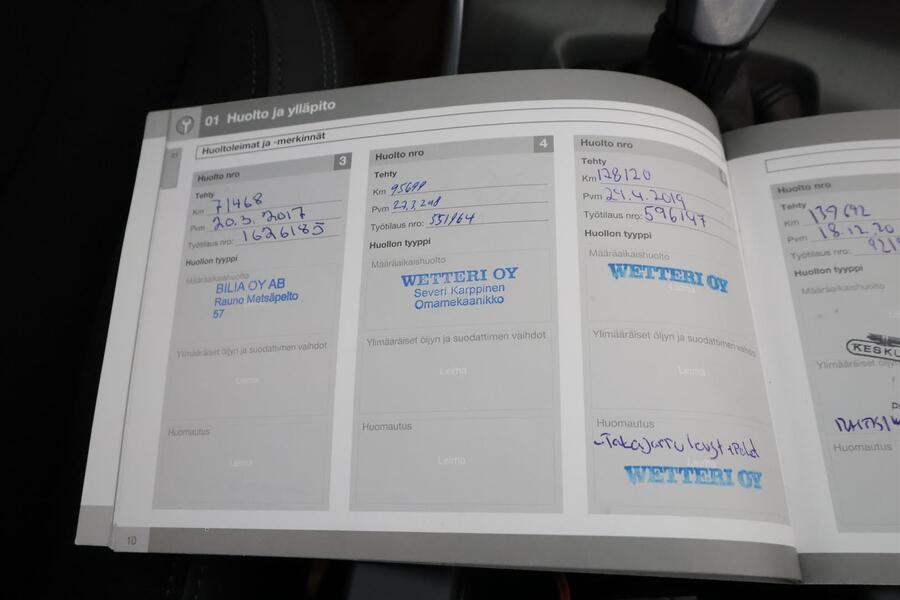 01 Huolto ja ylläpito
Huoltoleimat ja -merkinnät
01
3
Huolto nro
Tehty
Km 71468
Pvm 20.3.2017
Työtilaus nro: 1626185
Huollon tyyppi
Määräaikaishuolto
BILIA OY AB
Rauno Metsäpelto
57
Ylimääräiset öljyn ja suodattimen vaihdot
Leima
Huomautus
Leima
10
4
Huolto nro
Tehty
Km
Pvm
Työtilaus nro: 551164
Huollon tyyppi
Määräaikaishuolto
WETTERI OY
Severi Karppinen
Omamekaanikko
Ylimääräiset öljyn ja suodattimen vaihdot
Leima
Huomautus
Leima
Huolto nro
Tehty
Km 128120
Pvm 24.4.2019
Työtilaus nro: 596147
Huollon tyyppi
Määräaikaishuolto
WETTERI OY
Ylimääräiset öljyn ja suodattimen vaihdot
Leima
Huomautus
-Takajarru
WETTERI OY
Huolto nro
Tehty
Km 139692
Pvm 18.12.20
Työtilaus nro: 921
Huollon tyyppi
Määräaikaishuolto
KESKU
Ylimääräiset öljyn
Huomautus